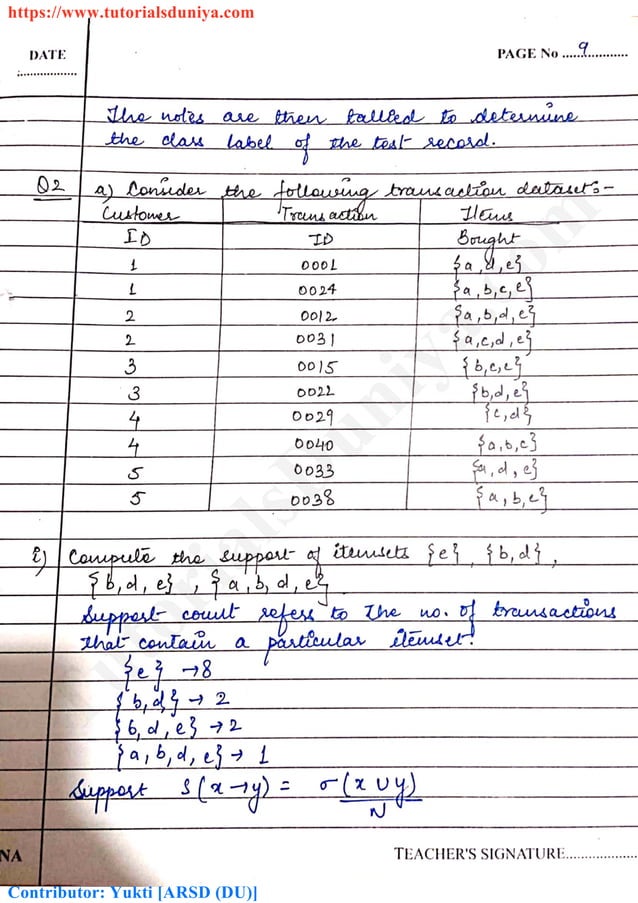 https://www.tutorialsduniya.com
DATE
PAGE No ...9...
The notes are then tallied to determine
the class label of the test record.
Q2 a) Consider the following transaction dataset:-
Customer Transaction Items
ID ID Bought
1 0001 {a,d,e}
1 0024 {a,b,c,e}
2 0012 {a,b,d,e}
2 0031 {a,c,d,e}
3 0015 {b,c,e}
3 0022 {b,d,e}
4 0029 {c,d}
4 0040 {a,b,c}
5 0033 {a,d,e}
5 0038 {a,b,e}
i) Compute the support of itemsets {e}, {b,d},
{b,d,e}, {a,b,d,e}
Support count refers to the no. of transactions
that contain a particular itemset.
{e} → 8
{b,d,} → 2
{b,d,e} → 2
{a,b,d,e} → 1
Support S(x→y) = σ(x∪y)
N
NA
TEACHER'S SIGNATURE..................
TutorialsDuniya.com
Contributor: Yukti [ARSD (DU)]